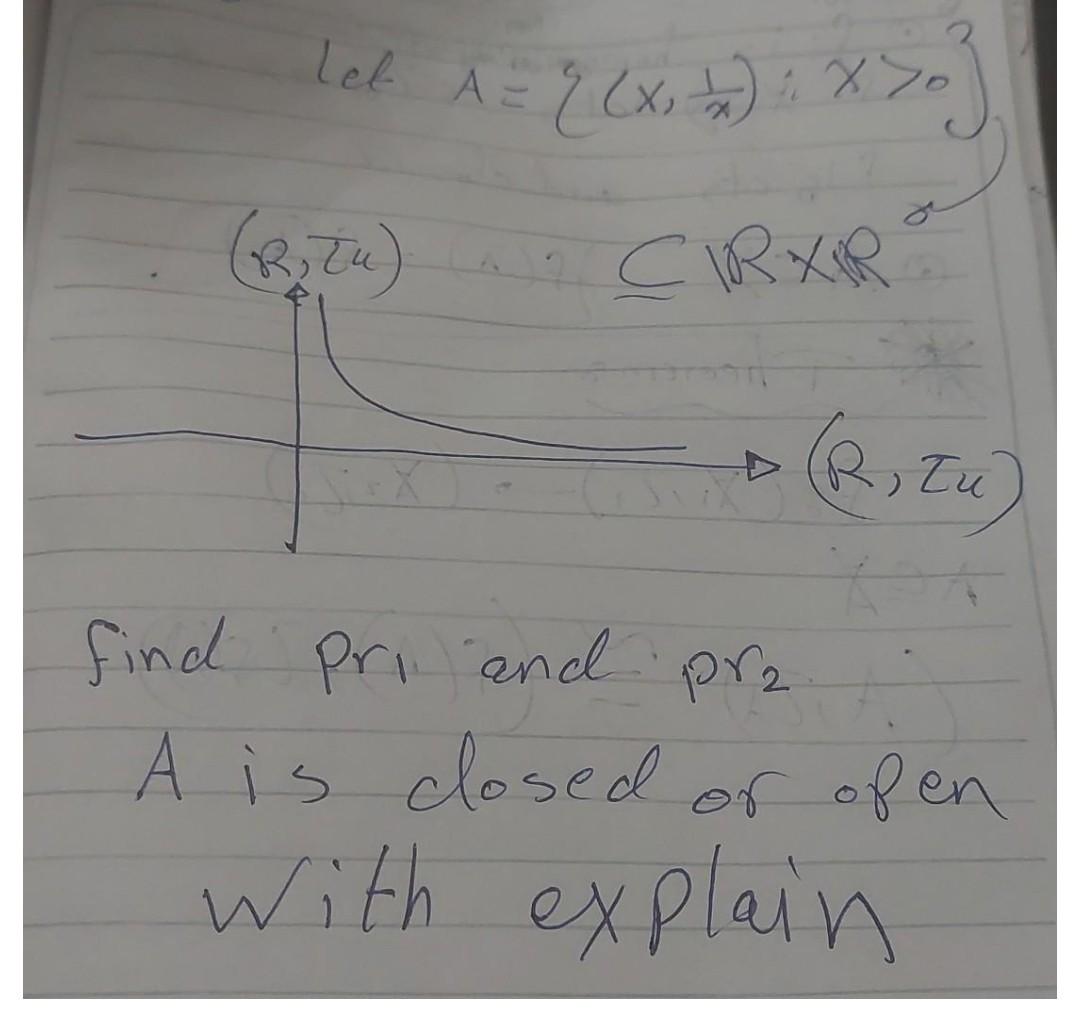 Let A = { (x, 1/x) : x > 0 }
⊆ ℝ × ℝ
(R, τu)
(R, τu)
find pr₁ and pr₂
A is closed or open
with explain